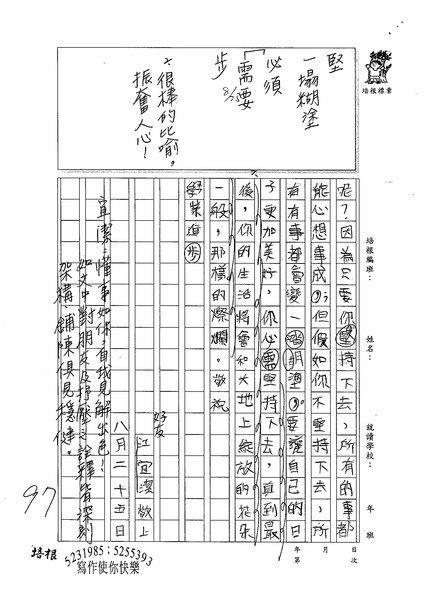 堅
一塌糊塗
必須
「需要
步
8/25
※很棒的比喻，
振奮人心！
培根標章
培根編班：
姓名：
就讀學校：
年
班
年
月
日
第
次
呢？因為只要你堅持下去，所有的事都
能心想事成；但假如你不堅持下去，所
有有事都會變一塌糊塗。要讓自己的日
子更加美好，你心需堅持下去，直到最
後，你的生活將會和大地上綻放的花朵
一般，那樣的燦爛。敬祝
學業進步
好友
江宜潔敬上
八月二十五日
宜潔：懂事如你，自我見解出色！
如文中對朋友及抒壓之詮釋皆深刻
架構、鋪陳俱見穩健。
97
培根
5231985；5255393
寫作使你快樂